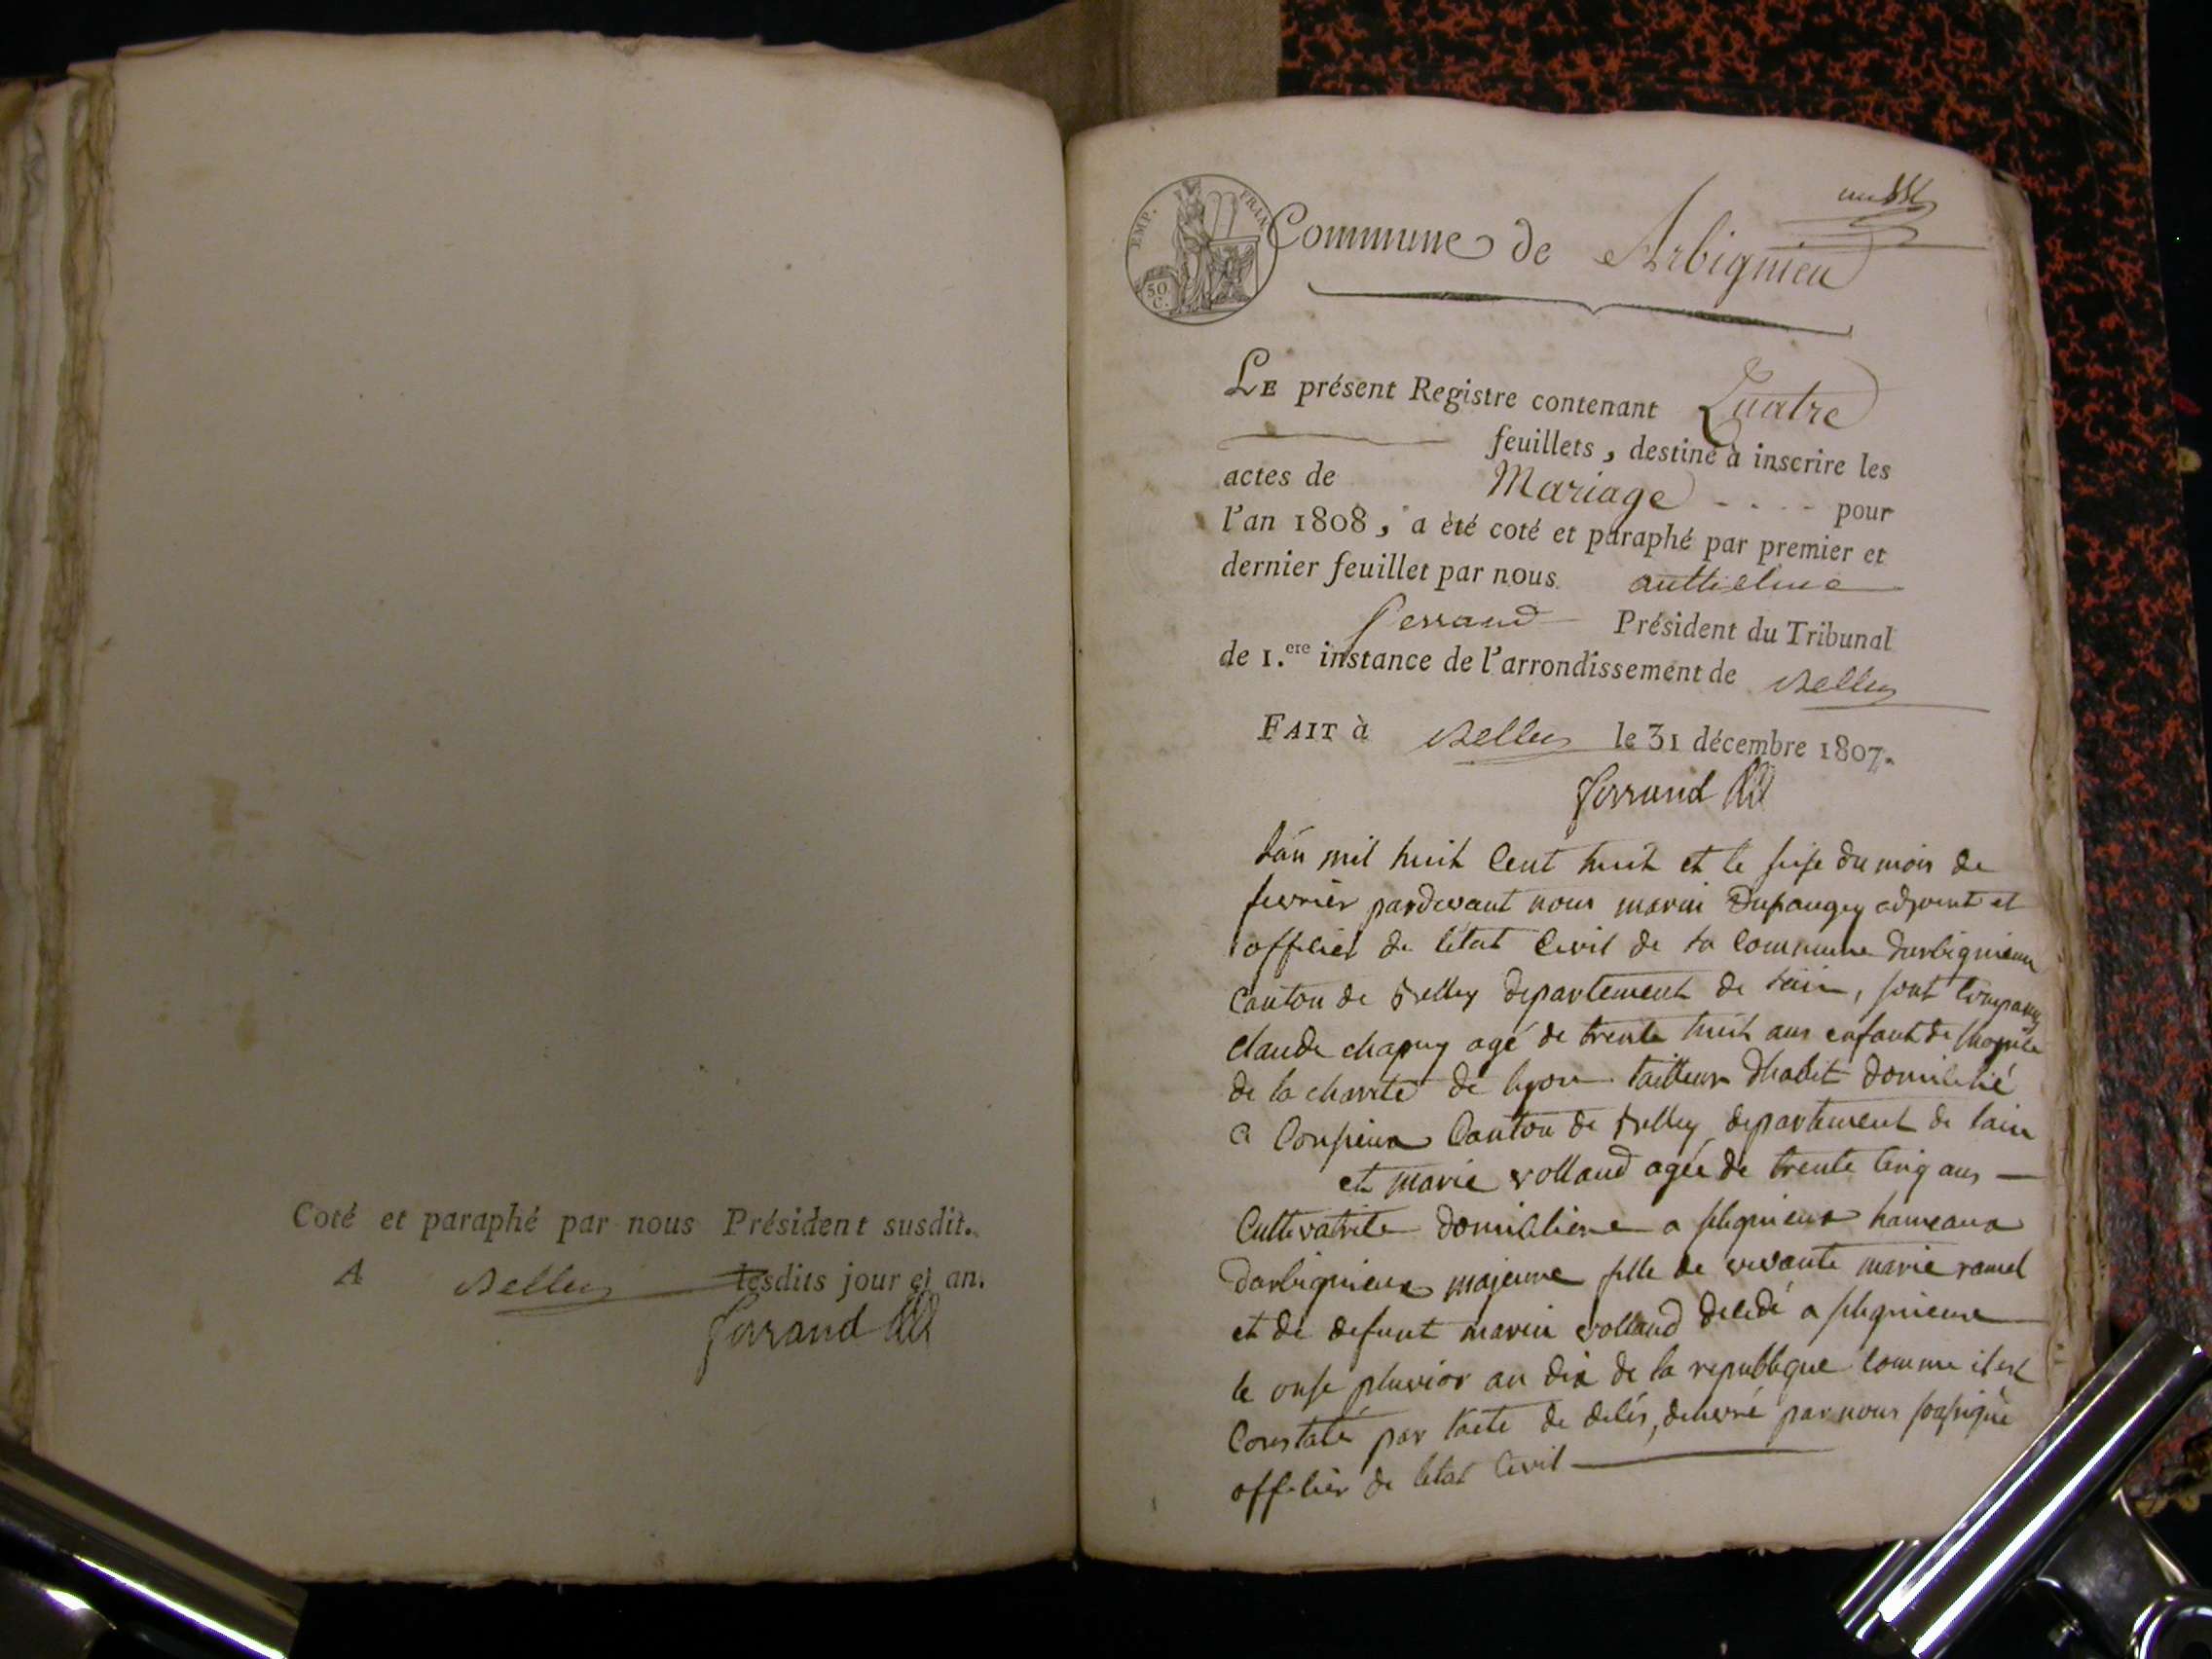 Coté et paraphé par nous Président susdit.
A Belley lesdits jour et an.
ferrand
EMP. FRAN.
50 C.
Commune de Arbignieu
LE présent Registre contenant Quatre
feuillets, destiné à inscrire les
actes de Mariage - - - - pour
l'an 1808, a èté coté et paraphé par premier et
dernier feuillet par nous anthelme
ferrand Président du Tribunal
de 1.ere instance de l'arrondissement de Belley
FAIT à Belley le 31 décembre 1807.
ferrand
L'an mil huit Cent huit et le seise du mois de
fevrier pardevant nous marin Dupaugey adjoint et
officier de létat Civil de la Commune darbignieux
Canton de Belley departement de lain, sont Comparus
claude chapuy agé de trente huit ans enfant de lhopital
de la charité de lyon tailleur dhabit domicilié
a Consieux Canton de Belley departement de lain
et marie volland agée de trente Cinq ans —
Cultivatrice domiciliere a slignieux hameaux
darbignieux majeure fille de vivante marie ramel
et de defunt marin volland decedé a slignieux
le onse pluvior an dix de la republique Comme il est
Constaté par lacte de décés, delivré par nous sousigné
officier de létat Civil —